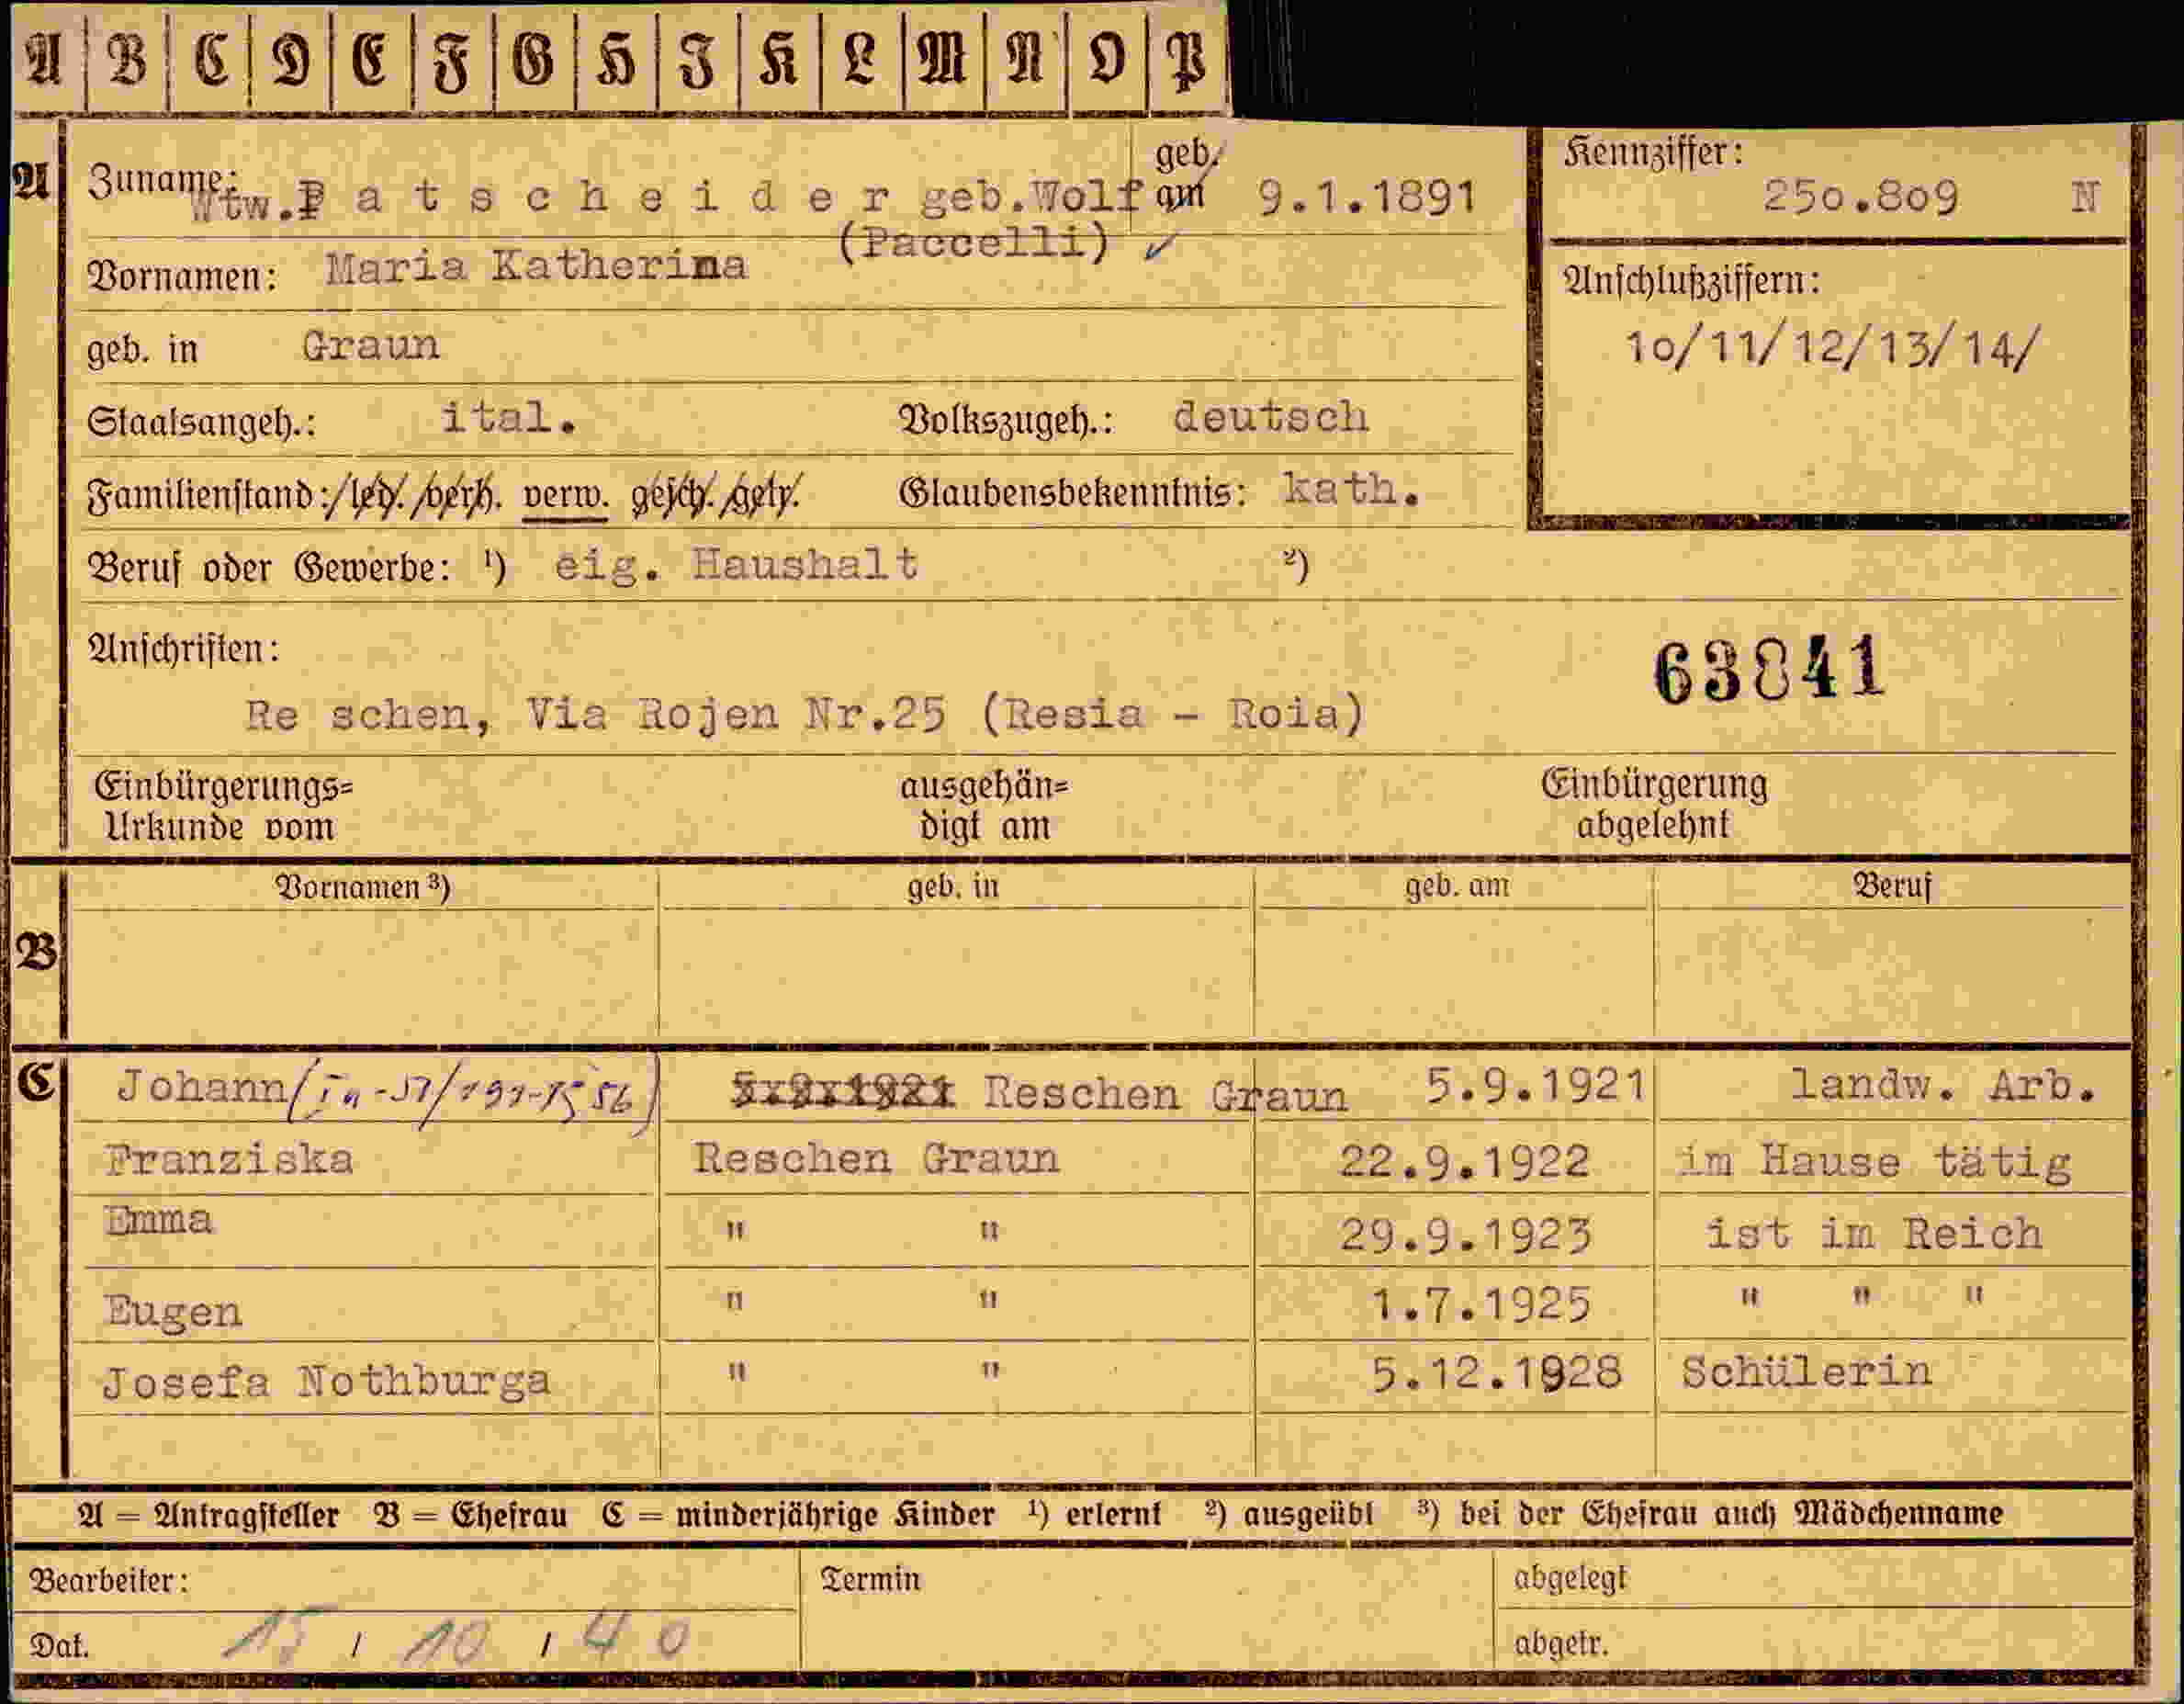 A B C D E F G H I K L M N O P
A Zuname: Wtw. Patscheider geb. Wolf geb. am 9.1.1891 Kennziffer: 250.809 N
(Paccelli) ✓
Vornamen: Maria Katherina
Anschlußziffern:
10/11/12/13/14/
geb. in Graun
Staatsangeh.: ital. Volkszugeh.: deutsch
Familienstand: led. verh. verw. gesch. getr. Glaubensbekenntnis: kath.
Beruf oder Gewerbe: ¹) eig. Haushalt ²)
Anschriften:
63841
Re schen, Via Rojen Nr.25 (Resia - Roia)
Einbürgerungs= ausgehän= Einbürgerung
Urkunde vom digt am abgelehnt
Vornamen ³) geb. in geb. am Beruf
B
C Johann 5.9.1921 Reschen Graun 5.9.1921 landw. Arb.
Franziska Reschen Graun 22.9.1922 im Hause tätig
Emma " " 29.9.1923 ist im Reich
Eugen " " 1.7.1925 " " "
Josefa Nothburga " " 5.12.1928 Schülerin
A = Antragsteller B = Ehefrau C = minderjährige Kinder ¹) erlernt ²) ausgeübt ³) bei der Ehefrau auch Mädchenname
Bearbeiter: Termin abgelegt
Dat. 15 / 10 / 40 abgetr.